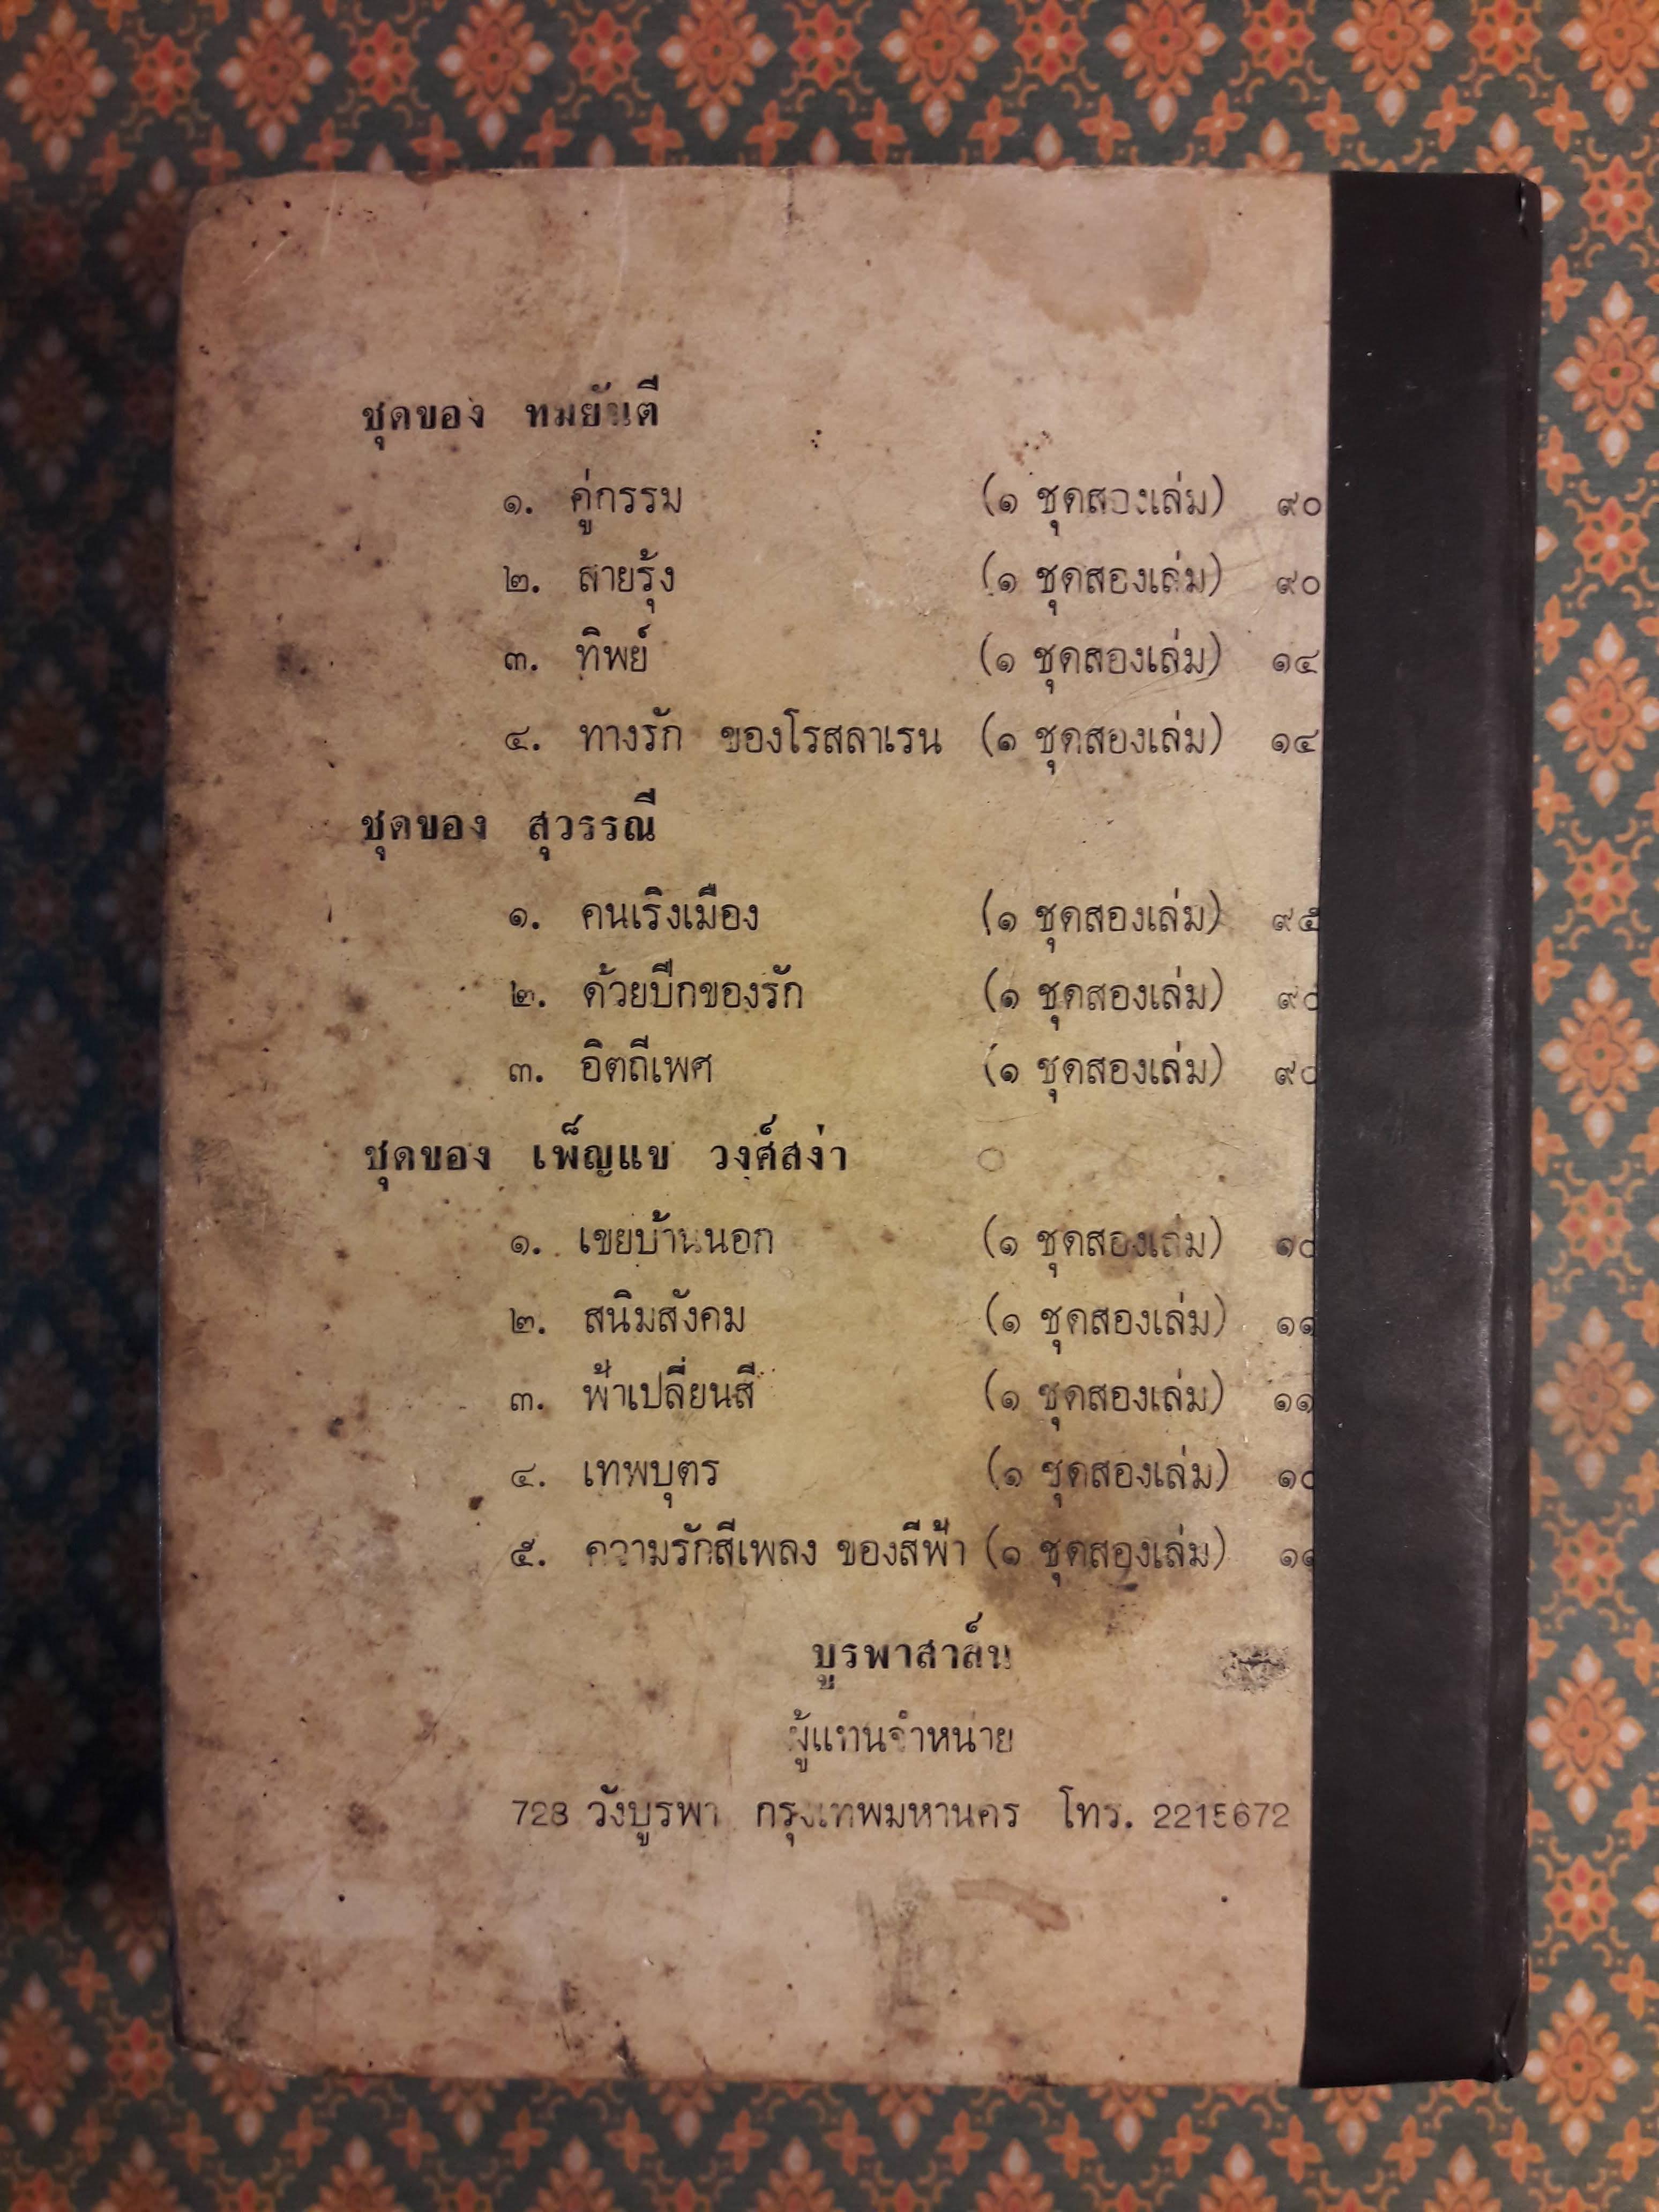 ชุดของ ทมยันตี
๑. คู่กรรม (๑ ชุดสองเล่ม) ๙๐
๒. สายรุ้ง (๑ ชุดสองเล่ม) ๙๐
๓. ทิพย์ (๑ ชุดสองเล่ม) ๑๔
๔. ทางรัก ของโรสลาเรน (๑ ชุดสองเล่ม) ๑๔
ชุดของ สุวรรณี
๑. คนเริงเมือง (๑ ชุดสองเล่ม) ๙๕
๒. ด้วยปีกของรัก (๑ ชุดสองเล่ม) ๙๐
๓. อิตถีเพศ (๑ ชุดสองเล่ม) ๙๐
ชุดของ เพ็ญแข วงศ์สง่า
๑. เขยบ้านนอก (๑ ชุดสองเล่ม) ๑๐
๒. สนิมสังคม (๑ ชุดสองเล่ม) ๑๑
๓. ฟ้าเปลี่ยนสี (๑ ชุดสองเล่ม) ๑๑
๔. เทพบุตร (๑ ชุดสองเล่ม) ๑๐
๕. ความรักสีเพลง ของสีฟ้า (๑ ชุดสองเล่ม) ๑๑
บูรพาสาล์น
ผู้แทนจำหน่าย
728 วังบูรพา กรุงเทพมหานคร โทร. 2215672